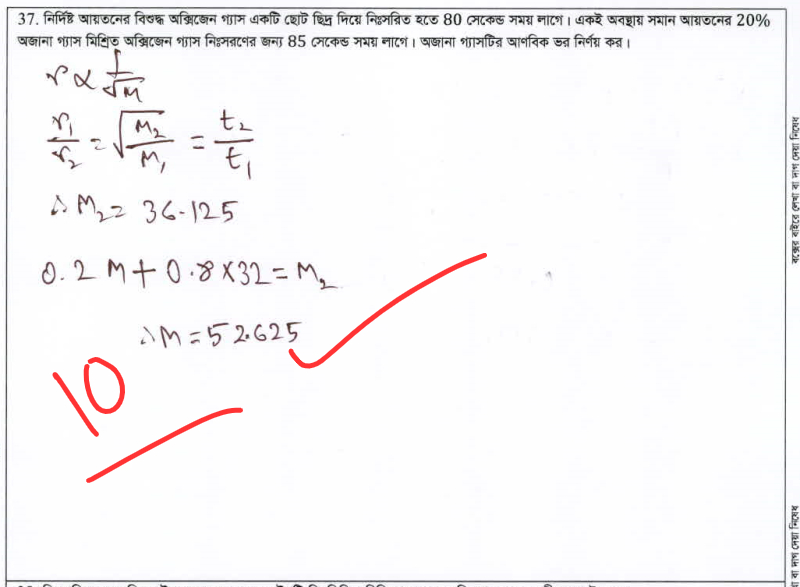 37. নির্দিষ্ট আয়তনের বিশুদ্ধ অক্সিজেন গ্যাস একটি ছোট ছিদ্র দিয়ে নিঃসরিত হতে 80 সেকেন্ড সময় লাগে। একই অবস্থায় সমান আয়তনের 20%
অজানা গ্যাস মিশ্রিত অক্সিজেন গ্যাস নিঃসরণের জন্য 85 সেকেন্ড সময় লাগে। অজানা গ্যাসটির আণবিক ভর নির্ণয় কর।
r ∝ 1/√M
r₁/r₂ = √(M₂/M₁) = t₂/t₁
∴ M₂ = 36.125
0.2 M + 0.8 × 32 = M₂
∴ M = 52.625
10
বক্সের বাইরে লেখা বা দাগ দেয়া নিষেধ
বা দাগ দেয়া নিষেধ